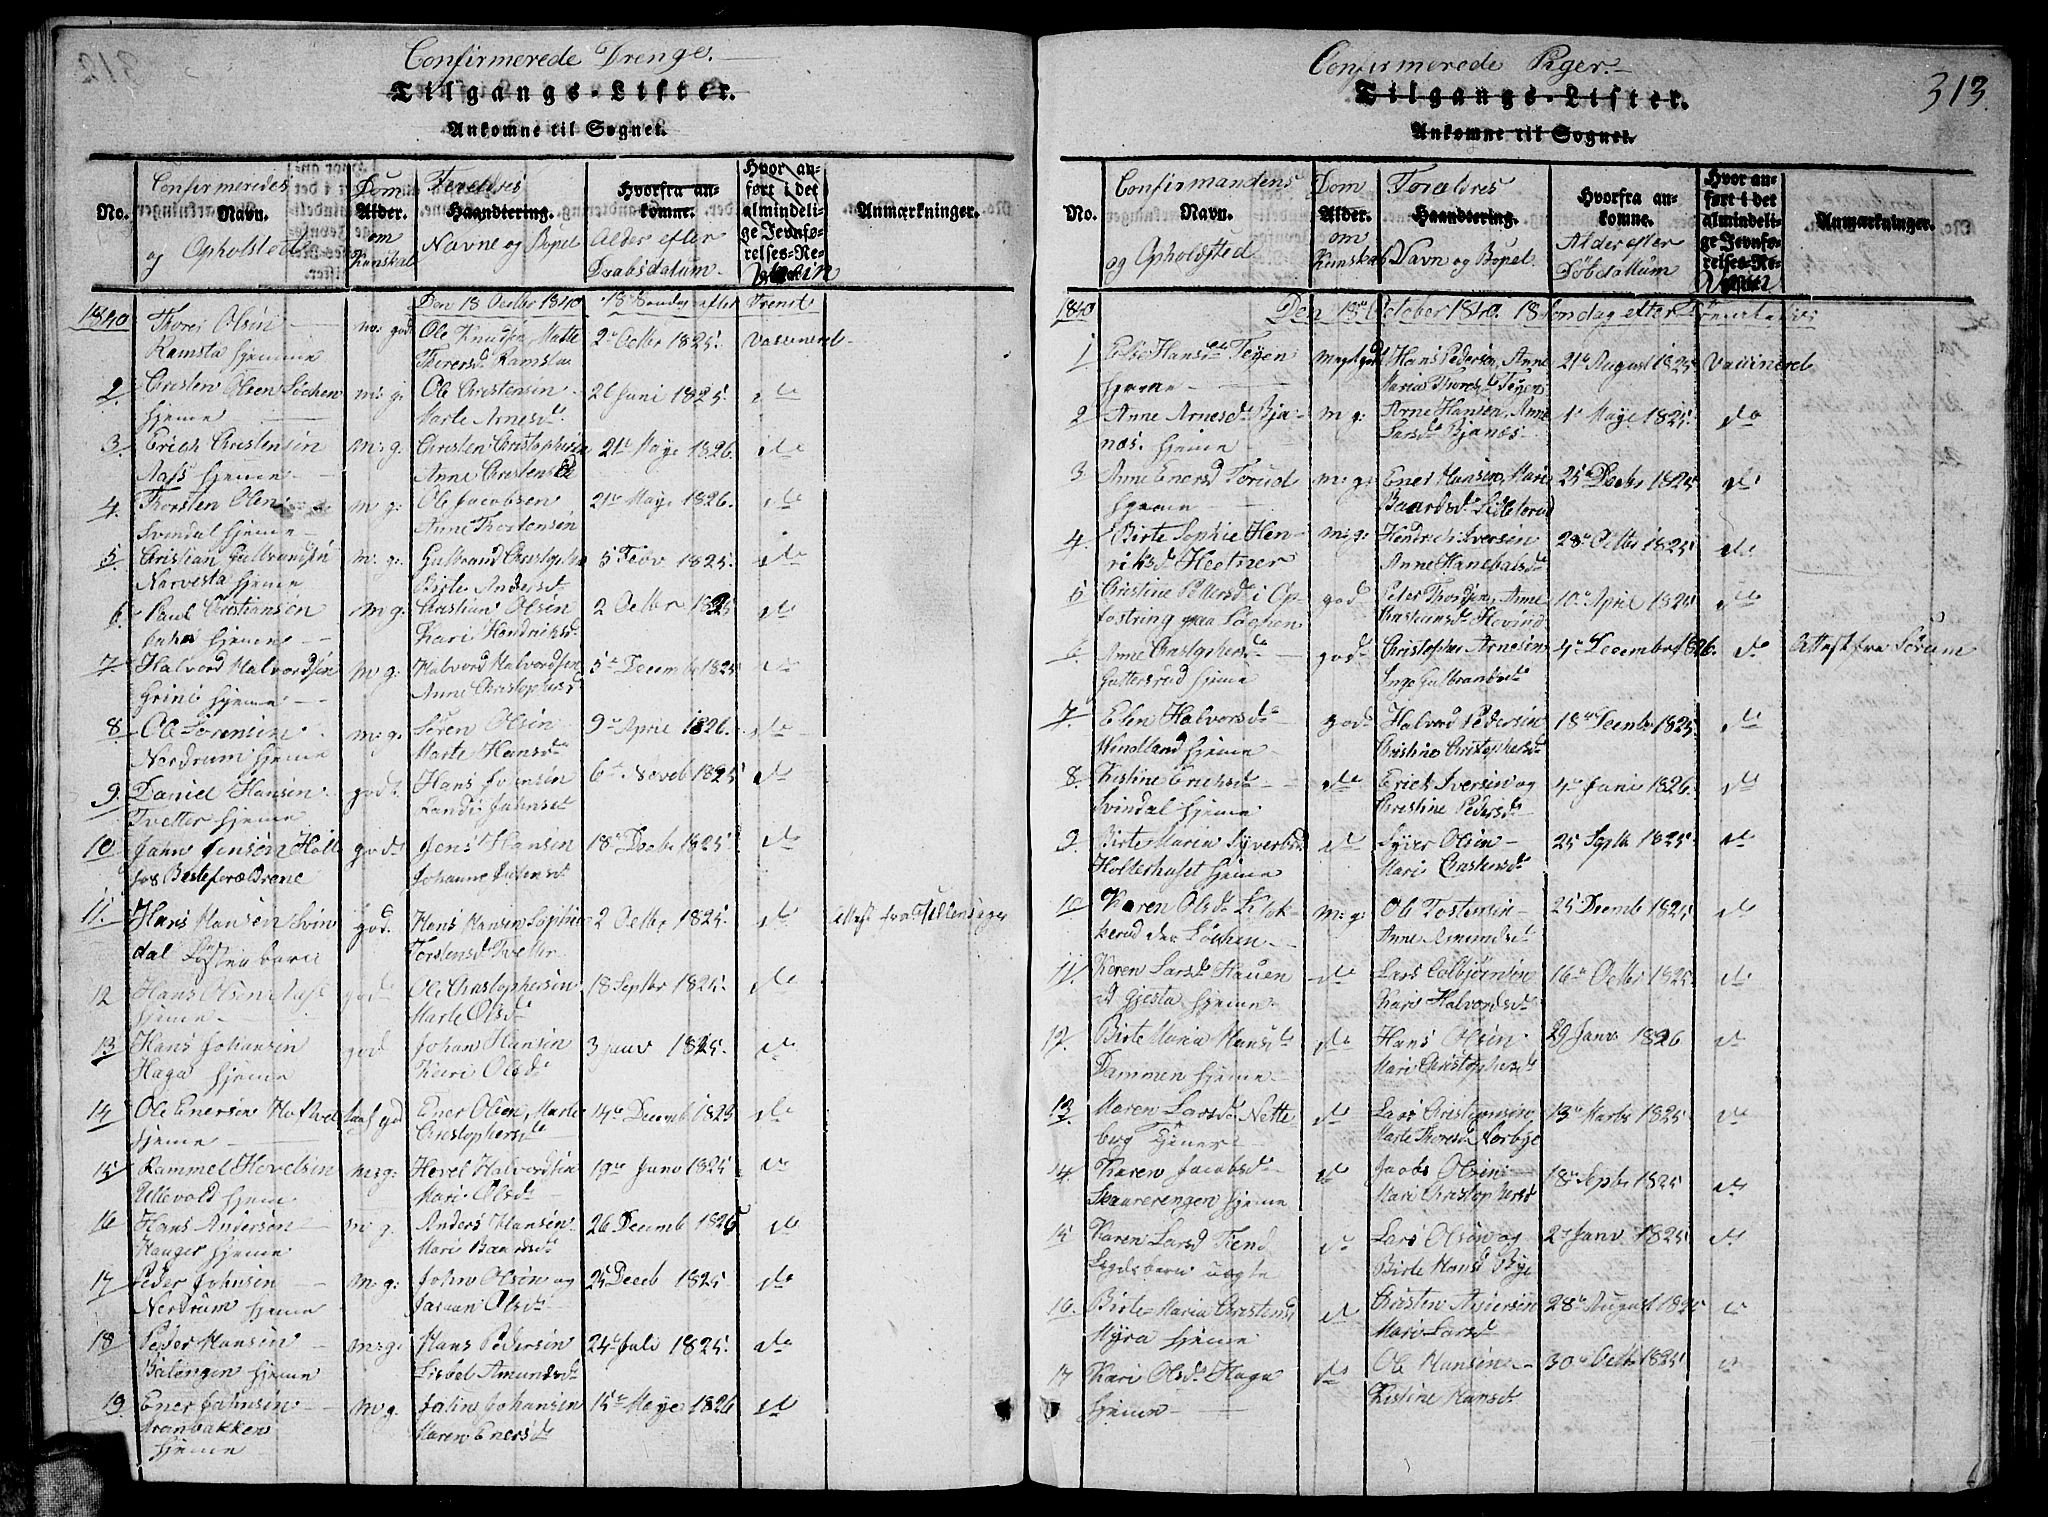 Confirmerede Drenge.
Tilgangs-Lister.
Ankomne til Sognet.
No.
Confirmeredes
Navn.
og Opholsted
Dom
Alder.
om
Kunskab
Foreldres
Haandtering.
Navne og Bopel
Hvorfra an-
komne.
Alder efter
Daabsdatum
Hvor an-
ført i det
almindeli-
ge Jevnfø-
relses-Re-
Anmærkninger.
1840
Den 18 Octbr 1840 18 Søndag efter Trenit
Thorer Olsen
Ramsta hjemme
m: god
Ole Knudsen, Mette
Thorersd Ramsta
2 Octbr 1825
Vaccineret
2. Cristen Olsen Lochen
hjeme
m: g:
Ole Christensen
Marte Arnesd
26 Juni 1825
do
3. Erich Christensen
hjeme
m: g.
Christen Christophersen
Anne Christensd
21 Maye 1826.
do
4. Thorsten Olsen
Svindal hjeme
m g:
Ole Jacobsen
Anne Thostensen
21 Maye 1826.
do
5. Cristian Gulbrandsen
Norvesta hjeme
m: g:
Gulbrand Christophersen
Birte Andersd
5 Febv 1825
do
6. Paul Christiansen
hjeme
m g:
Christian Olsen
Kari Hendriksd
2 Octbr 1825
do
7 Halvord Halvordsen
Grini hjeme
m: g:
Halvord Halvordsen
Anne Christophersd
5 Decemb 1825
do
8. Ole Sorensen
Nordrum hjeme
m: g.
Søren Olsen
Marte Hansd
9 April 1826.
do
9. Daniel Hansen
Tvetter hjeme
god
Hans
6 Noveb 1825
do
10 Jahn Jensen
hos Besteforæ
god
Jens Hansen
Johanne
18 Decbr 1825
do
11. Hans Hansen Svin
dal
god
Hans Hansen Sophie
Torstensd Tvetter
2 Octbr 1825
do
Attest fra
12 Hans Olsen
hjeme
god
Ole Christophersen
Marte Olsd
18 Septbr 1825
do
13 Hans Johansen
Haga hjeme
god
Johan Hansen
Kari Olsd
3 Janv 1825.
do
14 Ole Enersen
hjeme
god
Ener Olsen, Marte
Cristophersd
14 Decemb 1825
do
15 Rammel Hovelsen
Ullevold hjem
m:g:
Hovel Halvordsen
Mari Olsd
19 Janv 1825
do
16 Hans Andersen
Hauger hjeme
m: g.
Anders Hansen
Mari Baardsd
26 Decemb 1825
do
17 Peder Johnsen
Nordrum hjeme
m: g:
John Olsen og
Olsd
25 Decb 1825
do
18 Peder Hansen
Balengen hjeme
m:g:
Hans Pedersen
Lisbet Amundsd
24 Juli 1825
do
19 Ener Jahnsen
hjeme
m: g.
Johansen
Maren Enersd
15 Maye 1826
do
Confirmerede Piger.
Tilgangs-Lister.
Ankomne til Sognet.
313.
No.
Confirmandens
Navn.
og Opholdsted
Dom
Alder.
om
Kunskab
Forældres
Haandtering.
Navn og Bopel
Hvorfra an-
komne.
Alder efter
Døbdattum
Hvor an-
ført i det
almindeli-
ge Jevnfø-
relses-Re-
Anmærkninger.
1840
Den 18 October 1840. 18 Søndag efter Trenitatis
1 Else Hansd Teyen
hjeme
meget god
Hans Pedersen, Anne
Maria Thoresd Teyen
21 August 1825
Vaccineret
2 Anne Arnesd Bja-
nes. hjeme
m: g:
Arne Hansen, Anne
Larsd Bjanes
1 Maye 1825.
do
3 Anne Enersd Torud
hjeme
m: g:
Ener Hansen, Mari
Baardsd
25 Decbr 1825
do
4. Birte Sophie Hen-
riksd
m: g:
Hendrik Iversen
Anne
28 Octbr 1825
do
5 Christine Pettersd i Op-
fostring paa Lochen
god
Peter Thordsen, Anne
Hovind
10 April 1825
do
6 Anne Christophersd
Guttersrud hjeme
god
Christopher Arnesen
Inge Gulbrandsd
4 December 1826.
do
Attest fra Sørum
7 Elen Halvorsd
hjeme
god
Halvord Pedersen
Christine Christophersd
18 Decmbr 1825
do
8. Kistine Erichsd
Svindal hjeme
do
Erich Iversen og
Christine Pedersd
4 Juni 1826.
do
9. Birte Maria Syversd
Holterhuset hjeme
do
Syver Olsen
Mari Christensd
25 Septb 1825
do
10 Karen Olsd Klok-
kerud
m: g:
Ole Tostensen
Anne Amundsd
25 Decmb 1825
do
11. Karen Larsd Hauen
hjeme
do
Lars Colbjørnsen
Kari Halvordsd
16 Octbr 1825
do
12. Birte Maria Hansd
Dammen hjeme
do
Hans Olsen
Mari Christophersd
29 Janv 1826
do
13 Maren Larsd Nette
berg Tjener
do
Lars Christiansen
Marte Thoresd Norbye
13 Marts 1825
do
14. Karen Jacobsd
Skaurerengen hjeme
do
Jacob Olsen
Mari Christophersd
18 Septbr 1825
do
15 Karen Larsd
do
Lars Olsen og
Birte Hansd Bye
2 Janv 1825
do
16. Birte Maria Christensd
Myra hjeme
do
Christen Andersen
Mari Larsd
28 August 1825
do
17 Kari Olsd Haga
hjeme
do
Ole Hansen
Kistine Hansd
30 Octbr 1825
do